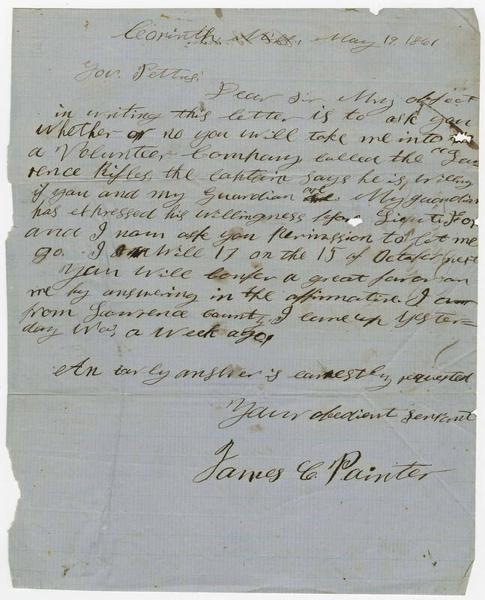 Corinth, Miss, May 19, 1861
Gov. Pettus,
Dear Sir My object
in writing this letter is to ask you
whether or no you will take me into
a Voluntier Company called the Law
rence Rifles the Captain says he is willing
if you and my Guardian are My guardian
has expressed his willingness before
and I now ask you Permission to let me
go. I Will 17 on the 15 of October next
You Will confer a great favor on
me by answering in the affirmative I am
from Lawrence County, I came up yester=
day Was a week ago,
An early answer is earnestly requested
Your obedient servant
James C Painter